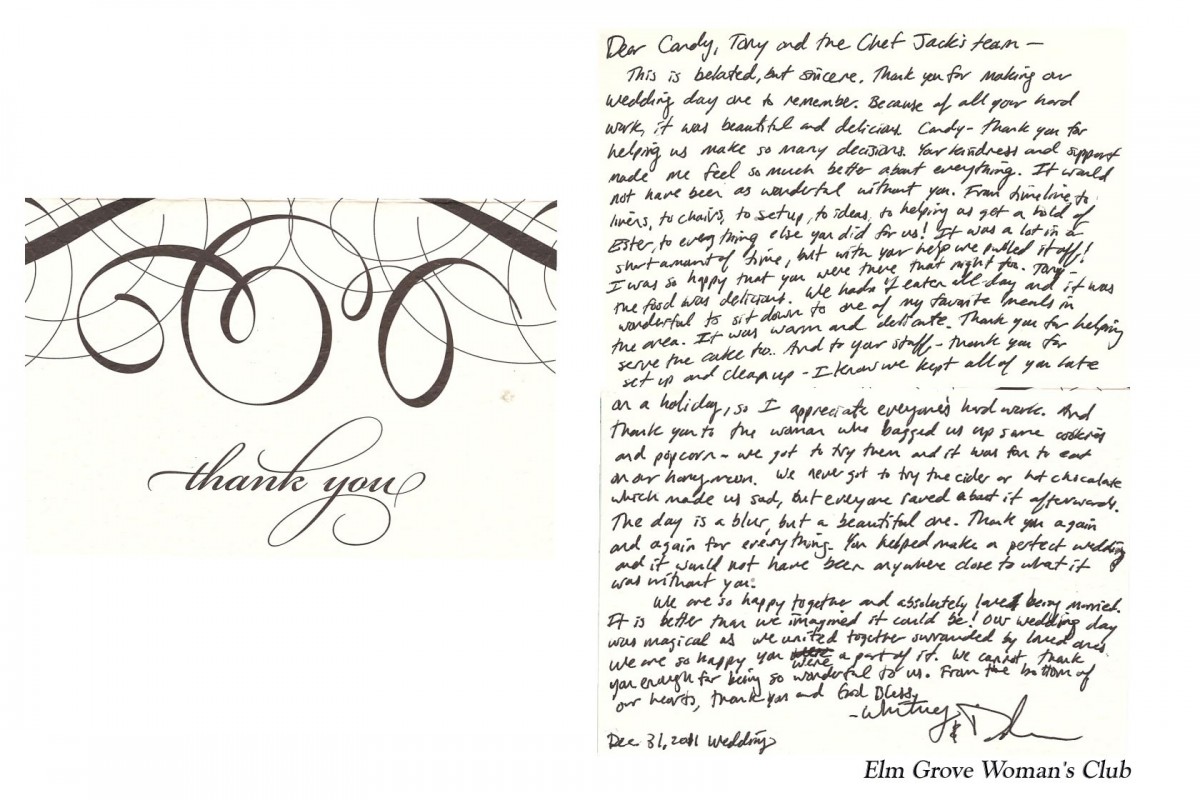 thank you
Dear Candy, Tony and the Chef Jack's team —
This is belated, but sincere. Thank you for making our
wedding day one to remember. Because of all your hard
work, it was beautiful and delicious. Candy - thank you for
helping us make so many decisions. Your kindness and support
made me feel so much better about everything. It would
not have been as wonderful without you. From timeline, to
linens, to chairs, to setup, to ideas, to helping us get a hold of
Ester, to everything else you did for us! It was a lot in a
short amount of time, but with your help we pulled it off!
I was so happy that you were there that night too. Tony -
the food was delicious. We hadn't eaten all day and it was
wonderful to sit down to one of my favorite meals in
the area. It was warm and delicate. Thank you for helping
serve the cake too. And to your staff - thank you for
set up and clean up - I know we kept all of you late
on a holiday, so I appreciate everyone's hard work. And
thank you to the woman who bagged us up some cookies
and popcorn - we got to try them and it was fun to eat
on our honeymoon. We never got to try the cider or hot chocolate
which made us sad, but everyone raved about it afterwards.
The day is a blur, but a beautiful one. Thank you again
and again for everything. You helped make a perfect wedding
and it would not have been anywhere close to what it
was without you.
We are so happy together and absolutely love being married.
It is better than we imagined it could be! Our wedding day
was magical as we united together surrounded by loved ones.
We are so happy you were a part of it. We cannot thank
you enough for being so wonderful to us. From the bottom of
our hearts, thank you and God Bless,
- Whitney &
Dec 31, 2011 Wedding
Elm Grove Woman's Club